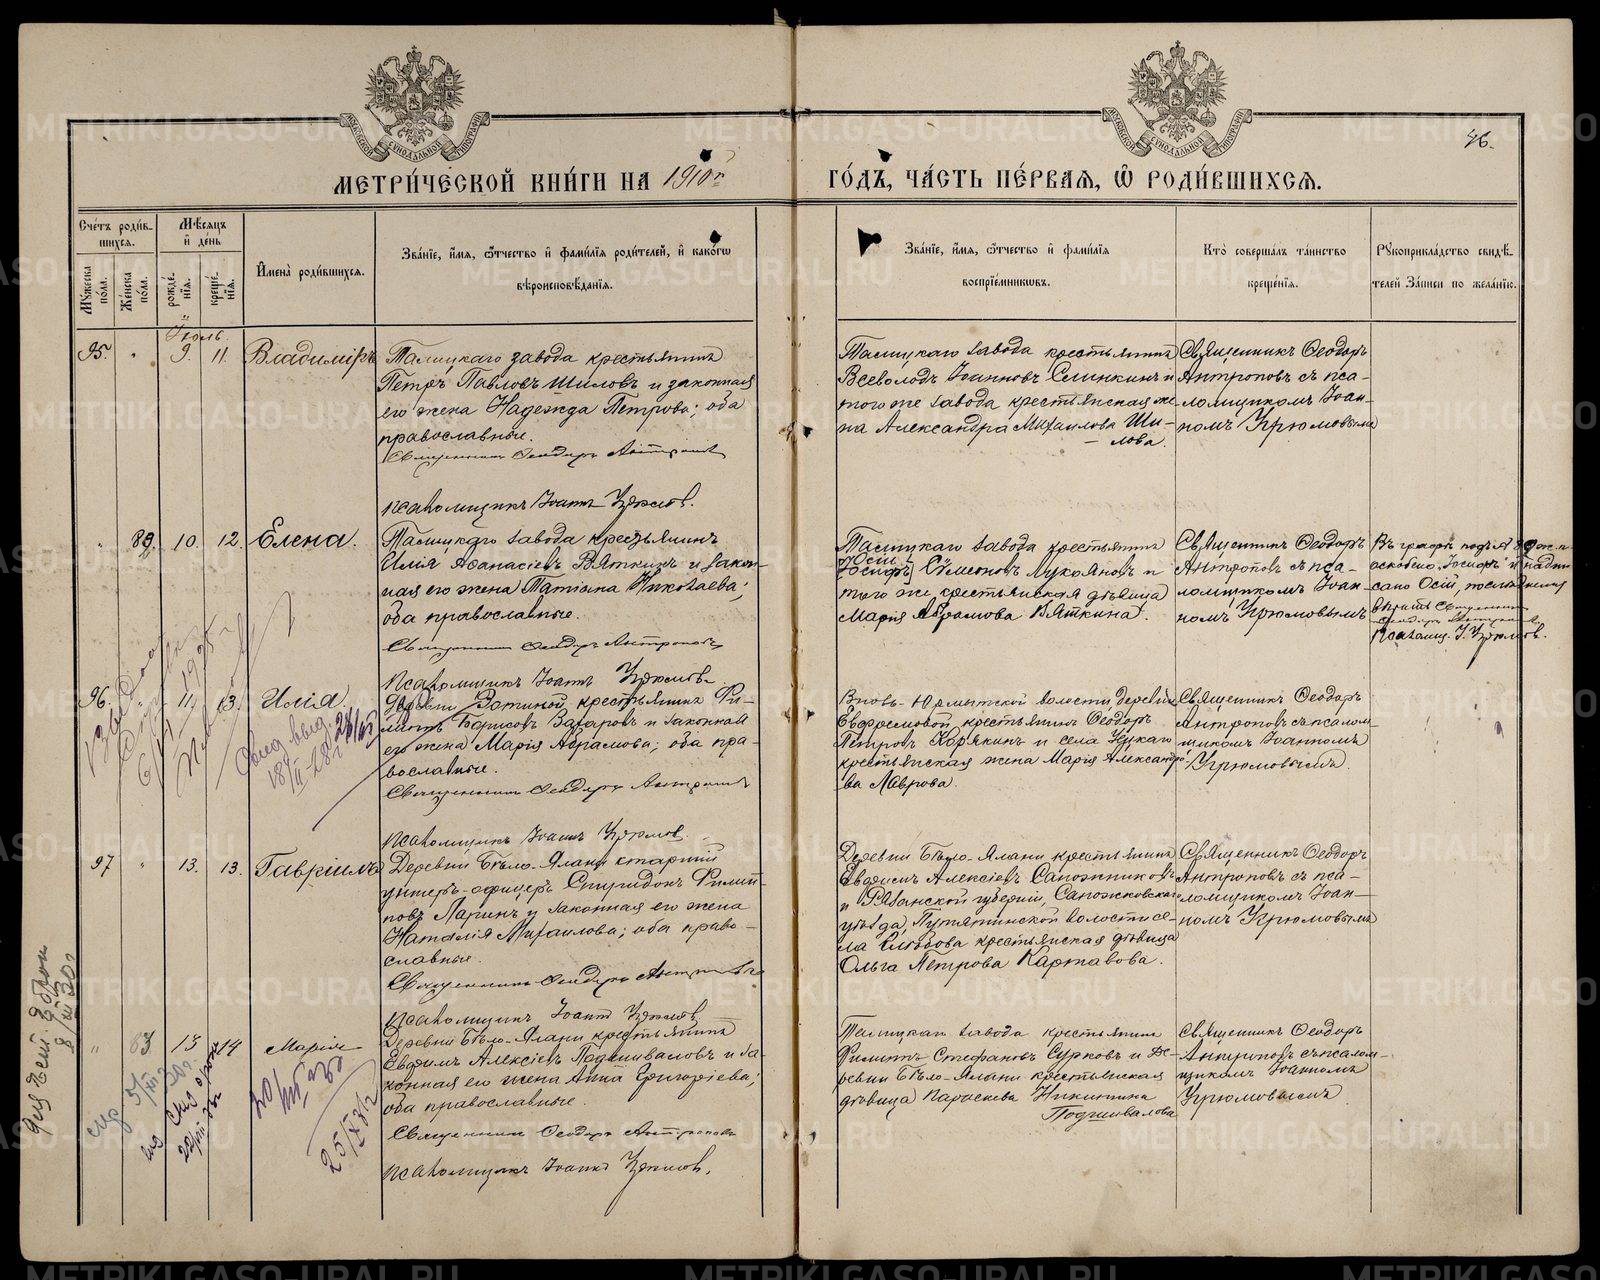 METRIKI.GASO-URAL.RU
МОСКОВСКОЙ СѴНОДАЛЬНОЙ ТИПОГРАФІИ
МОСКОВСКОЙ СѴНОДАЛЬНОЙ ТИПОГРАФІИ
46.
МЕТРИ́ЧЕСКОЙ КНИ́ГИ НА 1910 г.
ГО́ДЪ, ЧА́СТЬ ПЕ́РВАЯ, Ѿ РОДИ́ВШИХСѦ.
Сче́тъ роди́в-
шихсѧ.
Мꙋ́жеска по́ла.
Же́нска по́ла.
Мѣ́сѧцъ
и҆ де́нь
рожде́-
нїѧ.
креще́-
нїѧ.
И҆мена̀ роди́вшихсѧ.
Зва́нїе, и҆́мѧ, ѻ҆́тчество и҆ фами́лїѧ роди́телей, и҆ како́гѡ
вѣроисповѣ́данїѧ.
Зва́нїе, и҆́мѧ, ѻ҆́тчество и҆ фами́лїѧ
воспрїе́мникѡвъ.
Кто̀ соверша́лъ та́инство
креще́нїѧ.
Рꙋкоприкла́дство свидѣ́-
телей за́писи по жела́нїю.
Іюль
95. " 9. 11. Владиміръ
Талицкаго завода крестьянинъ
Петръ Павловъ Шиловъ и законная
его жена Надежда Петрова; оба
православные.
Священникъ Ѳеодоръ Антроповъ
Псаломщикъ Іоаннъ Угрюмовъ.
Талицкаго завода крестьянинъ
Всеволодъ Іоанновъ Селинкинъ и
того же завода крестьянская же-
на Александра Михаилова Ши-
лова.
Священникъ Ѳеодоръ
Антроповъ съ пса-
ломщикомъ Іоан-
номъ Угрюмовымъ
" 89. 10. 12. Елена.
Талицкаго завода крестьянинъ
Илія Аѳанасіевъ Вяткинъ и закон-
ная его жена Татіана Николаева;
оба православные.
Священникъ Ѳеодоръ Антроповъ
Псаломщикъ Іоаннъ Угрюмовъ.
Талицкаго завода крестьянинъ
Осій
Іосифъ Сѵмеоновъ Лукояновъ и
того же крестьянская дѣвица
Марія Абрамова Вяткина.
Священникъ Ѳеодоръ
Антроповъ съ пса-
ломщикомъ Іоан-
номъ Угрюмовымъ
Въ графѣ подъ № 89
Іосифъ и надпи-
сано Осій,
Псаломщ. І. Угрюмовъ.
96. " 11. 13. Илія.
Деревни Зотиной крестьянинъ Фи-
липпъ Борисовъ Захаровъ и законная
его жена Марія Абрамова; оба пра-
вославные.
Священникъ Ѳеодоръ Антроповъ
Псаломщикъ Іоаннъ Угрюмовъ.
Вновь-Юрмытской волости деревни
Ефремовой крестьянинъ Ѳеодоръ
Петровъ Корякинъ и села
крестьянская жена Марія Александро-
ва Лаврова.
Священникъ Ѳеодоръ
Антроповъ съ псалом-
щикомъ Іоанномъ
Угрюмовымъ.
97 " 13. 13. Гавріилъ
Деревни Бѣло-Ялани старшій
унтеръ-офицеръ Спиридонъ Филип-
повъ Ларинъ и законная его жена
Наталія Михаилова; оба право-
славные.
Священникъ Ѳеодоръ Антроповъ
Псаломщикъ Іоаннъ Угрюмовъ
Деревни Бѣло-Ялани крестьянинъ
Евдокимъ Алексіевъ Сапожниковъ
и Рязанской губерніи, Сапожковскаго
уѣзда, Путятинской волости се-
ла крестьянская дѣвица
Ольга Петрова Картавова.
Священникъ Ѳеодоръ
Антроповъ съ пса-
ломщикомъ Іоан-
номъ Угрюмовымъ
" 13 14 Марія
Деревни Бѣло-Ялани крестьянинъ
Ефимъ Алексіевъ Подшиваловъ и за-
конная его жена Анна Григоріева;
оба православные.
Священникъ Ѳеодоръ Антроповъ
Псаломщикъ Іоаннъ Угрюмовъ.
Талицкаго завода крестьянинъ
Филиппъ Стефановъ Сурковъ и де-
ревни Бѣло-Ялани крестьянская
дѣвица Параскева Никитина
Подшивалова
Священникъ Ѳеодоръ
Антроповъ съ псалом-
щикомъ Іоанномъ
Угрюмовымъ